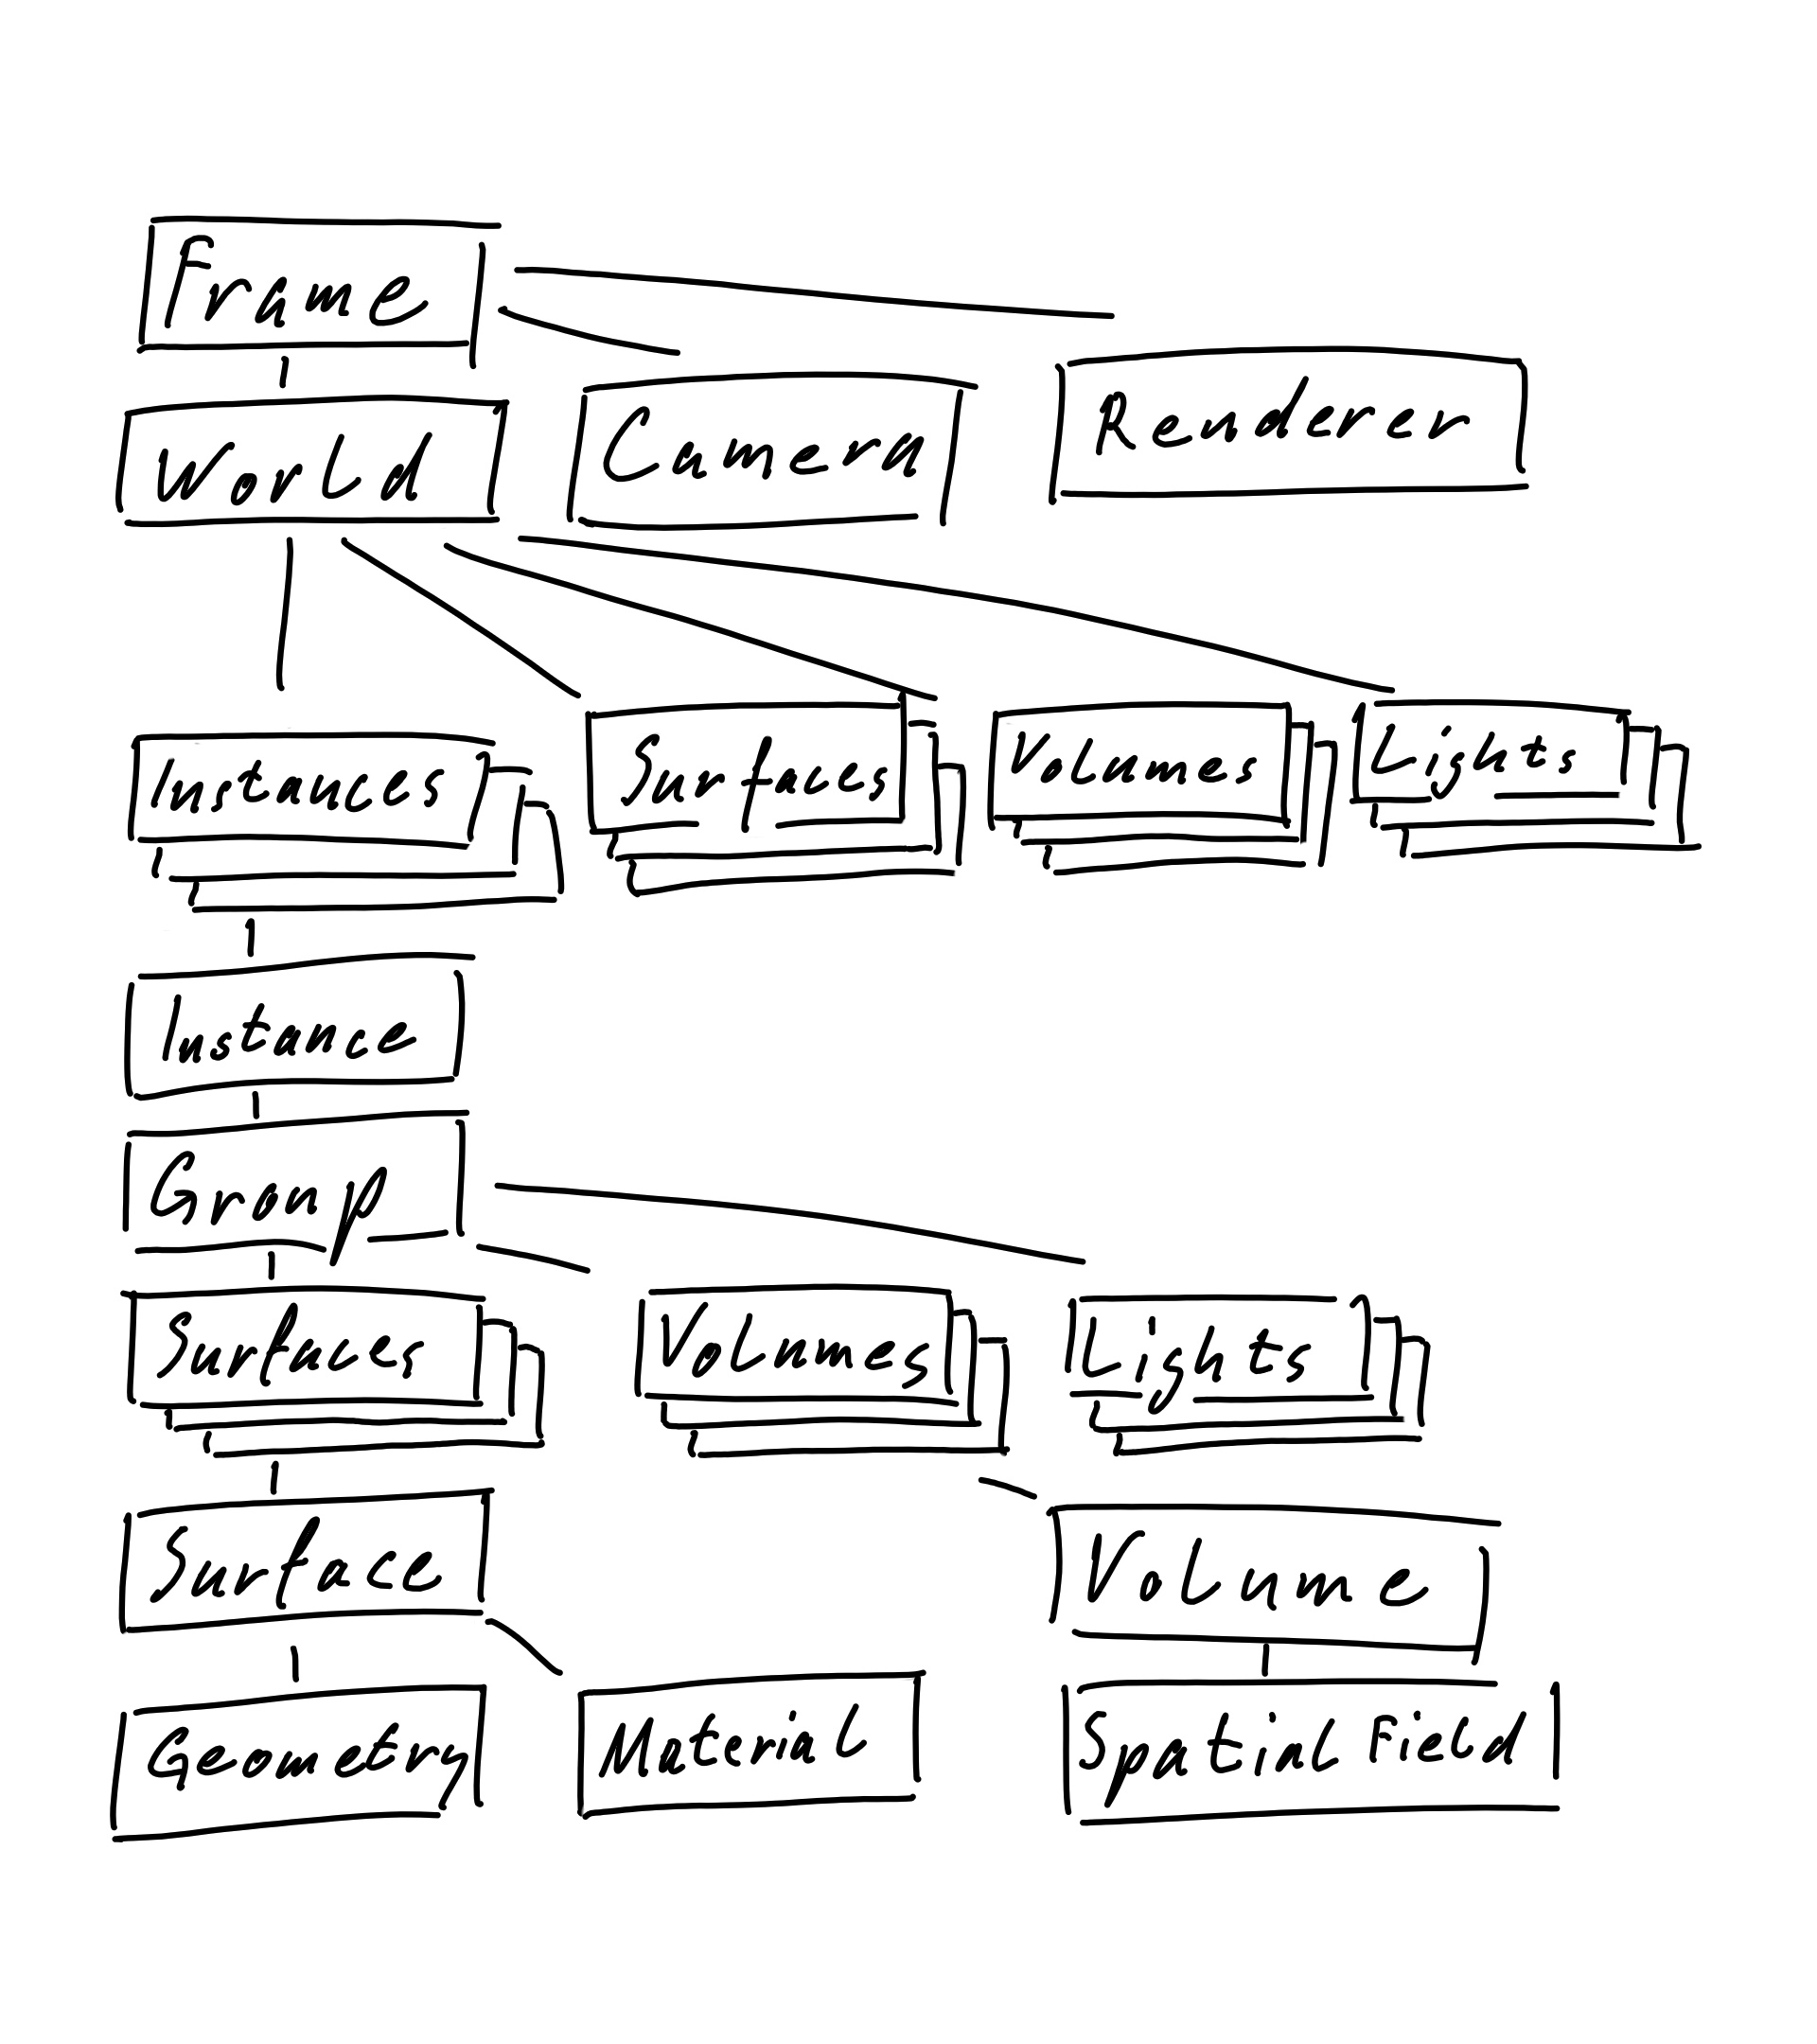 Frame
World
Camera
Renderer
Instances
Surfaces
Volumes
Lights
Instance
Group
Surfaces
Volumes
Lights
Surface
Volume
Geometry
Material
Spatial Field